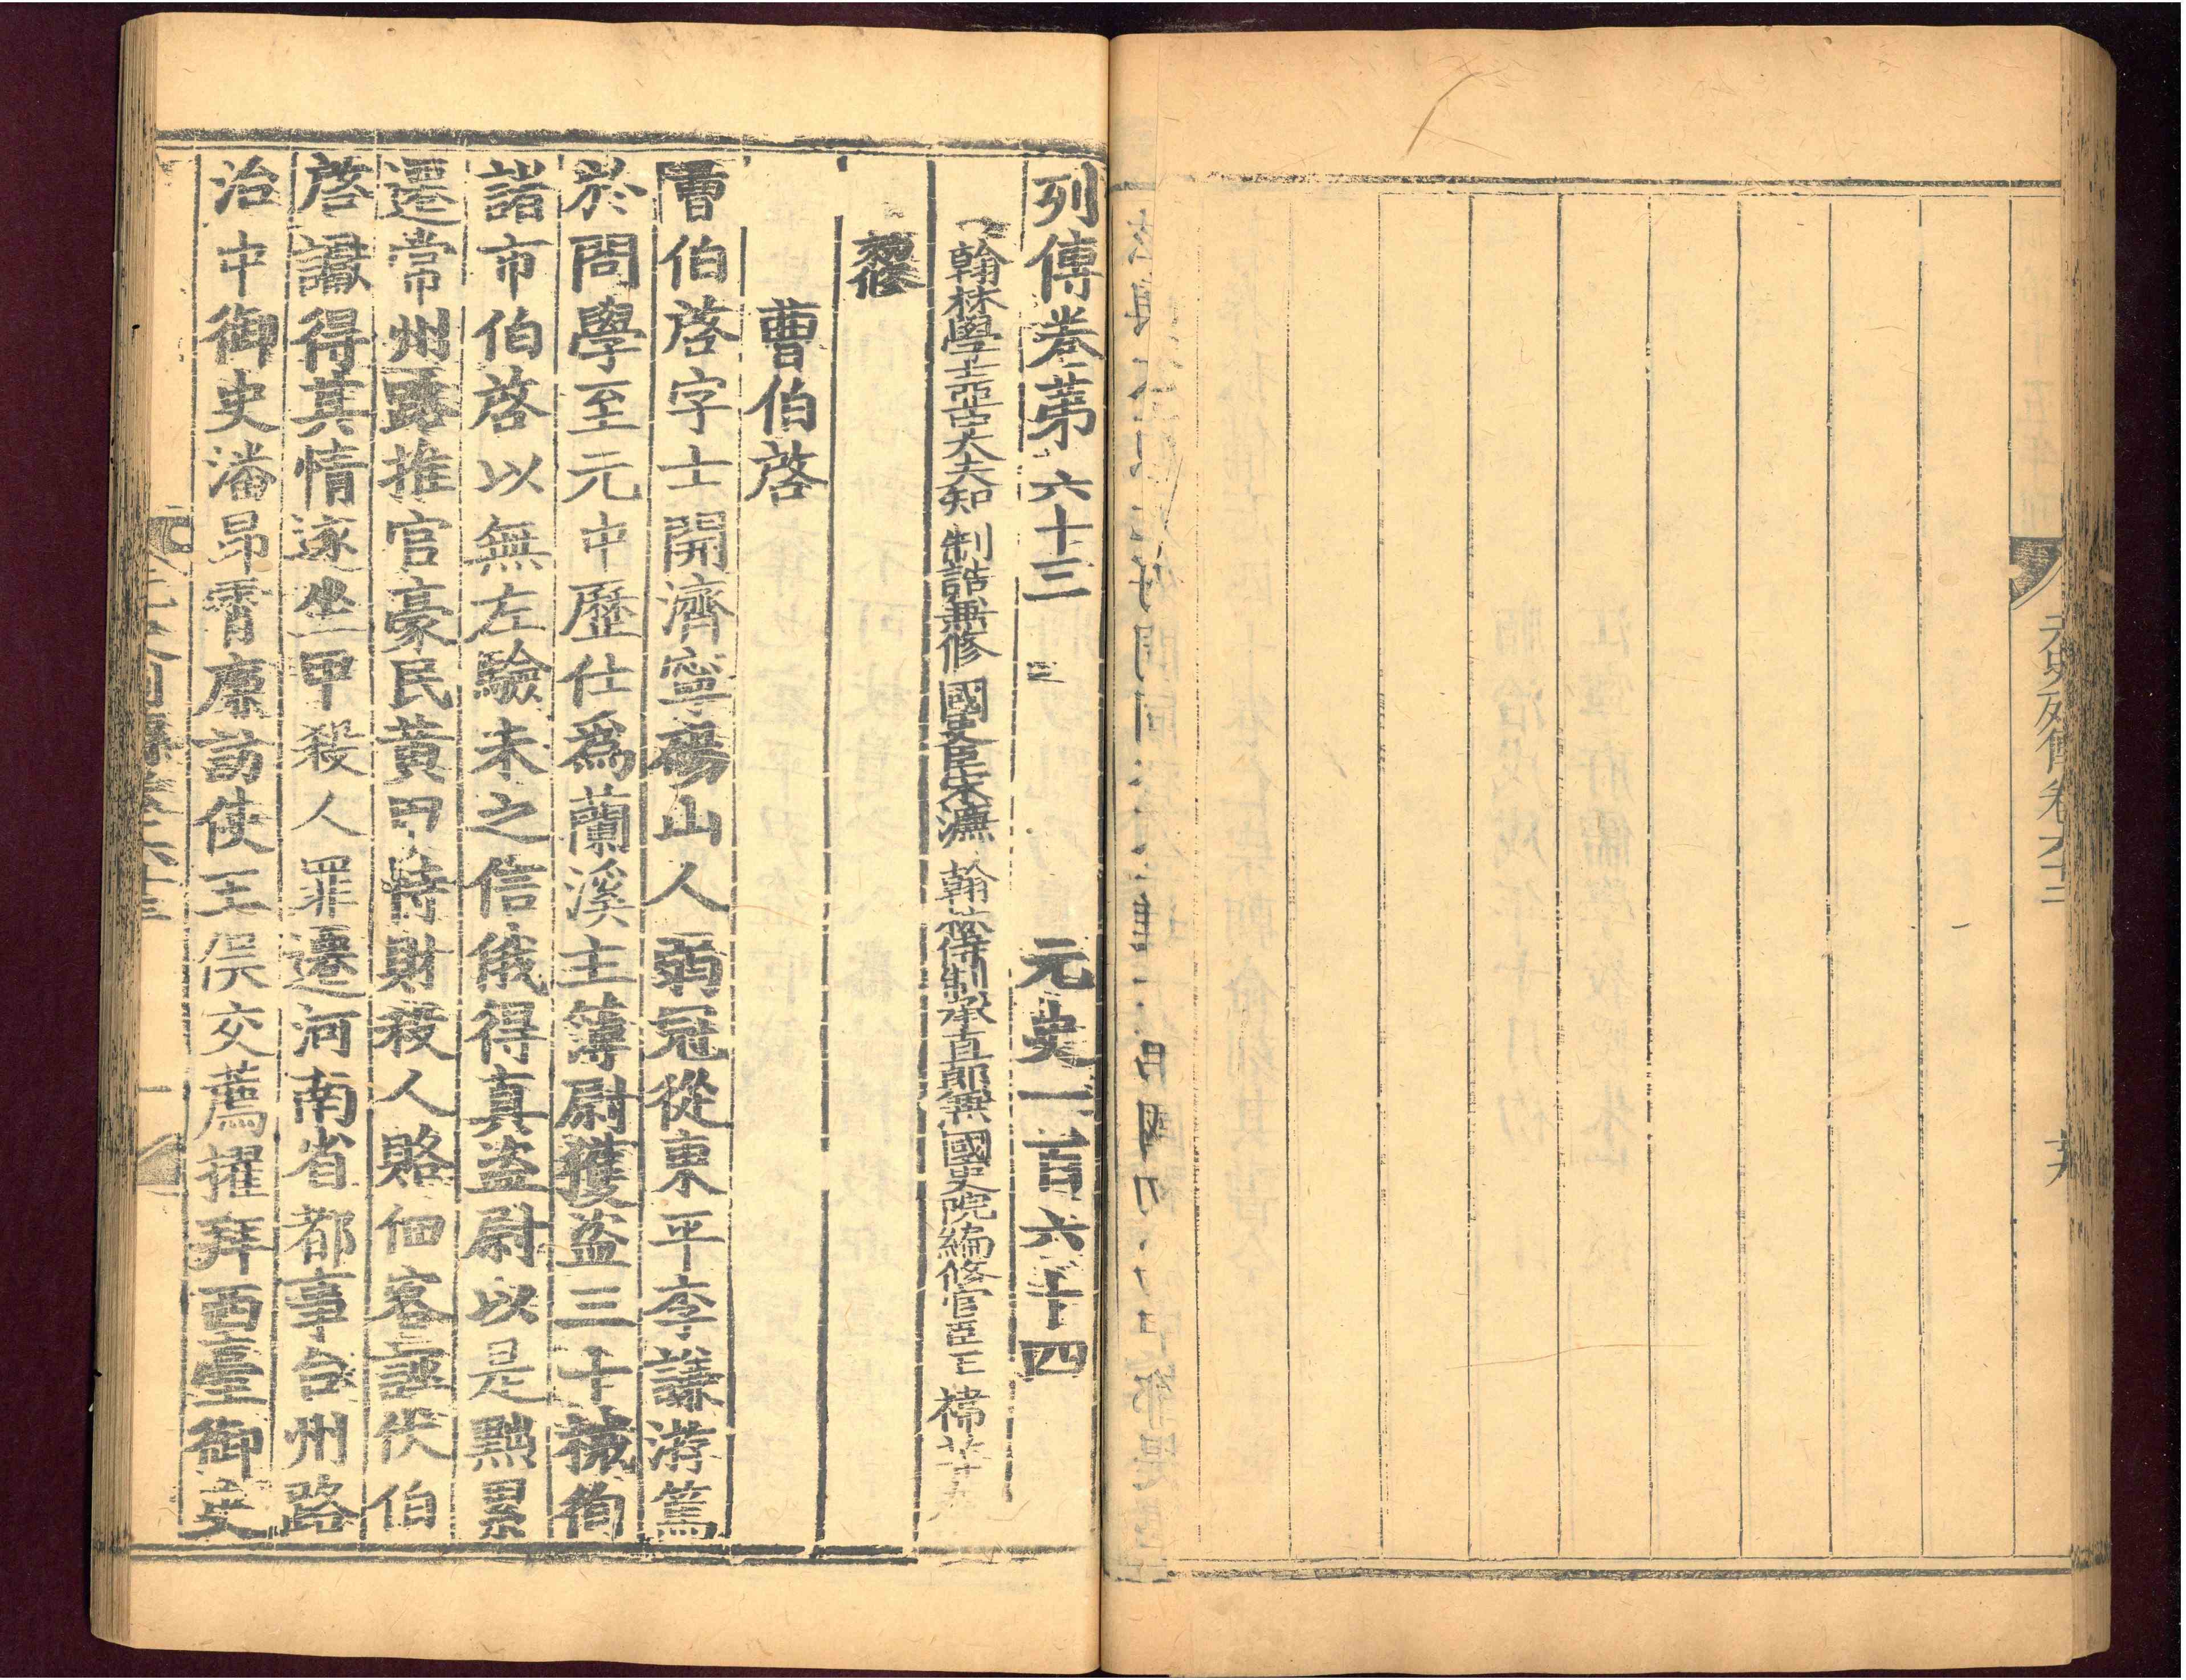 元史列傳卷六十二
列傳卷第六十三 元史一百六十四
翰林學士亞中大夫知 制誥兼修 國史臣宋濂 翰林待制承直郎兼 國史院編修官臣王 禕等奉
敕修
曹伯啓
曹伯啓字士開濟寧碭山人弱冠從東平李謙游篤
於問學至元中歷仕爲蘭溪主簿尉獲盜三十械徇
諸市伯啓以無左驗未之信俄得真盜尉以是黜累
遷常州路推官豪民黃甲恃財殺人賂佃客誣伏伯
啓讞得其情遂坐甲殺人罪遷河南省都事台州路
治中御史潘昂霄廉訪使王俁交薦擢拜西臺御史